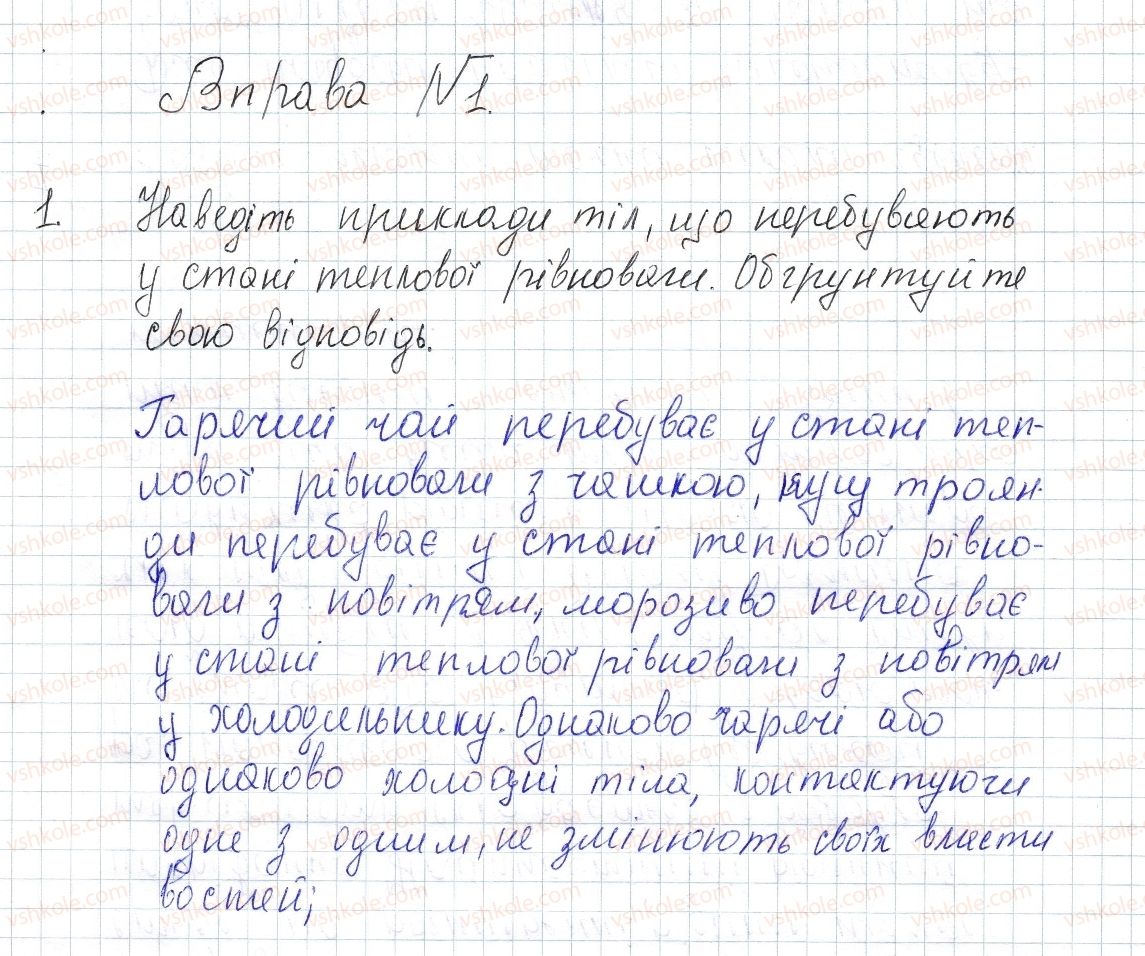 Вправа №1.
1. Наведіть приклади тіл, що перебувають
у стані теплової рівноваги. Обґрунтуйте
свою відповідь.
Гарячий чай перебуває у стані теп-
лової рівноваги з чашкою, кущ троян-
ди перебуває у стані теплової рівно-
ваги з повітрям, морозиво перебуває
у стані теплової рівноваги з повітрям
у холодильнику. Однаково гарячі або
однаково холодні тіла, контактуючи
одне з одним, не змінюють своїх власти
востей;